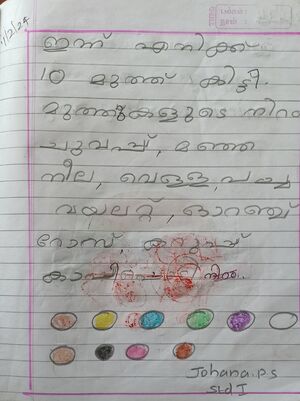 1/2/24
ഇന്ന് എനിക്ക്
10 മുത്ത് കിട്ടി.
മുത്തുകളുടെ നിറം
ചുവപ്പ്, മഞ്ഞ
നീല, വെള്ള, പച്ച
വയലറ്റ്, ഓറഞ്ച്
റോസ്, കറുപ്പ്
കാപ്പി
Johana.P.S
Std I